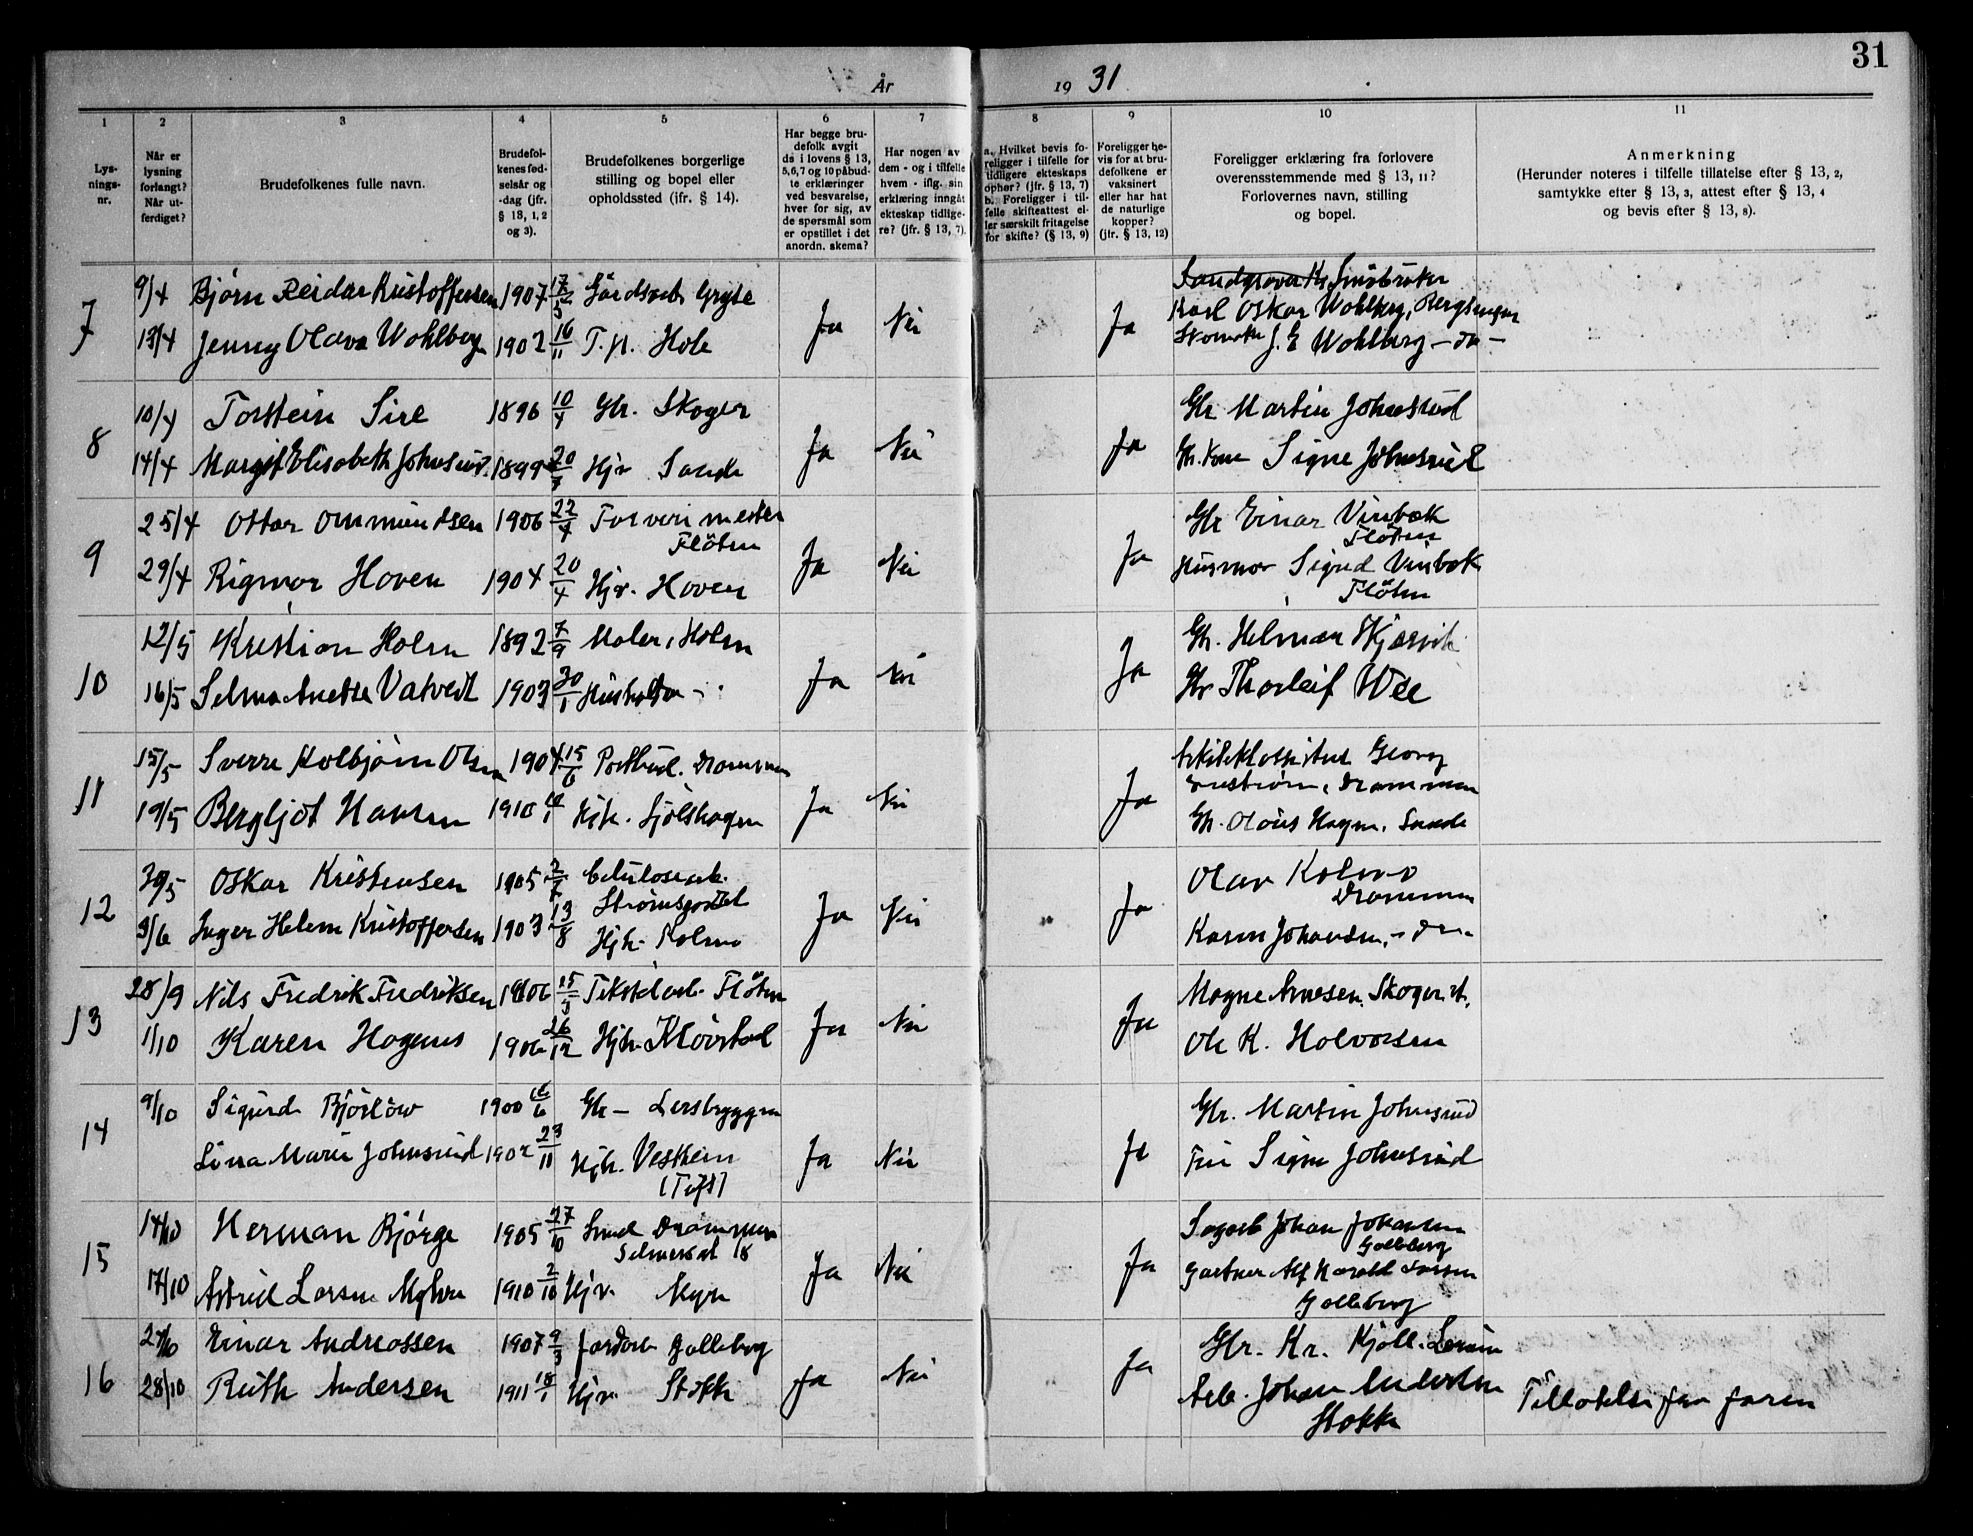 31
År 1931
1 2 3 4 5 6 7 8 9 10 11
Lys-
nings-
nr.
Når er
lysning
forlangt?
Når ut-
ferdiget?
Brudefolkenes fulle navn.
Brudefol-
kenes fød-
selsår og
-dag (jfr.
§ 13, 1, 2
og 3).
Brudefolkenes borgerlige
stilling og bopel eller
opholdssted (ifr. § 14).
Har begge bru-
defolk avgit
de i lovens § 13,
5, 6, 7 og 10 påbud-
te erklæringer
ved besvarelse,
hver for sig, av
de spørsmål som
er opstillet i det
anordn. skema?
Har nogen av
dem - og i tilfelle
hvem - iflg. sin
erklæring inngåt
ekteskap tidlige-
re? (jfr. § 13, 7).
a. Hvilket bevis fo-
religger i tilfelle for
tidligere ekteskaps
ophør? (jfr. § 13, 7)
b. Foreligger i til-
felle skifteattest el-
ler særskilt fritagelse
for skifte? (§ 13, 9)
Foreligger be-
vis for at bru-
defolkene er
vaksinert
eller har hat
de naturlige
kopper?
(jfr. § 13, 12)
Foreligger erklæring fra forlovere
overensstemmende med § 13, 11?
Forlovernes navn, stilling
og bopel.
Anmerkning
(Herunder noteres i tilfelle tillatelse efter § 13, 2,
samtykke efter § 13, 3, attest efter § 13, 4
og bevis efter § 13, 8).
7 9/4 Bjørn Reidar Kristoffersen 1907 17/5 Gårdsarb. Gryte Ja Nei Ja Småbruker
Karl Oskar Wohlberg, Bergsengen
13/4 Jenny Olava Wohlberg 1902 16/11 T.p. Hole J. E Wohlberg – do –
8 10/4 Torstein Sire 1896 10/4 Gbr. Skoger Ja Nei Ja Gbr Martin Johnsrud
14/4 Margit Elisabeth Johnsrud 1899 20/3 Hjv Sande Signe Johnsrud
9 25/4 Ottar Ommundsen 1906 22/4 Farverimester
Fløten Ja Nei Ja Gbr Einar Vinbæk
Fløten
29/4 Rigmor Hoven 1904 20/4 Hjv. Hoven Husmor Sigrid Vinbæk
Fløten
10 12/5 Kristian Holm 1892 7/9 Maler, Holm Ja Nei Ja Gbr. Helmer Skjærvik
16/5 Selma Anette Vatvedt 1903 30/1 Gbr Thorleif Wee
11 15/5 Sverre Kolbjørn Olsen 1904 15/6 Postbud. Drammen Ja Nei Ja Georg
Drammen
19/5 Bergljot Hansen 1910 Hjh. Gbr. Hagen, Sande
12 30/5 Oskar Kristensen 1905 2/7 Celulosearb.
Strømsgodset Ja Nei Ja Olav Kolmo
Drammen
3/6 Inger Helene Kristoffersen 1903 13/8 Hjh. Kolmo Karen Johansen, – do –
13 28/9 Nils Fredrik Fredriksen 1906 15/3 Tekstilarb. Fløten Ja Nei Ja Magne Arnesen. Skoger st.
1/10 Karen Hogenes 1906 26/12 Hjh. Kløvstad Ole K. Halvorsen
14 9/10 Sigurd Bjørløw 1900 Gbr – Lersbryggen Ja Nei Ja Gbr. Martin Johnsrud
Lina Marie Johnsrud 1902 23/11 Hjh. Vestheim
(Toft) Fru Signe Johnsrud
15 14/10 Herman Bjørge 1905 27/10 Smed Drammen
Selmersgt 18 Ja Nei Ja Sagarb Johan Johansen
Galleberg
17/10 Astrid Larsen Myhre 1910 2/10 Hjv. Myre Gartner Alf Harald Larsen
Galleberg
16 27/10 Einar Andreassen 1907 9/3 Jordarb Galleberg Ja Nei Ja Gbr. Kr. Kjøll.
28/10 Ruth Andersen 1911 18/1 Hjv. Stokke Arb. Johan Andersen
Stokke Tillatelse fra faren